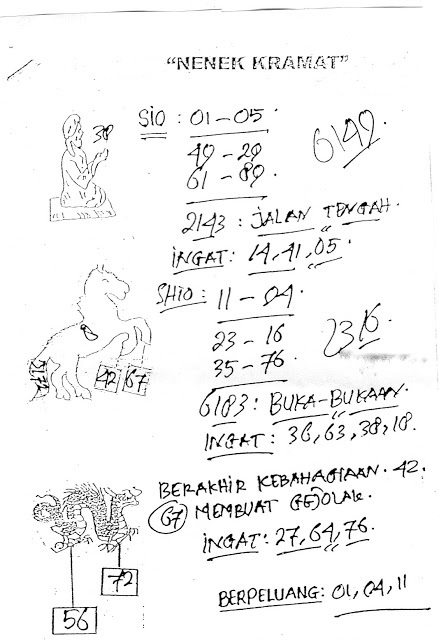 "NENEK KRAMAT"
SIO : 01 - 05.
38
49 - 29
61 - 89
6149
2143 : JALAN TENGAH.
INGAT : 14, 41, 05.
SHIO : 11 - 04
23 - 16
2316
35 - 76
42 67
6183 : BUKA-BUKAAN.
INGAT : 36, 63, 38, 18.
BERAKHIR KEBAHAGIAAN. 42.
67 MEMBUAT GEJOLAK.
INGAT : 27, 64, 76.
72
BERPELUANG : 01, 04, 11
56